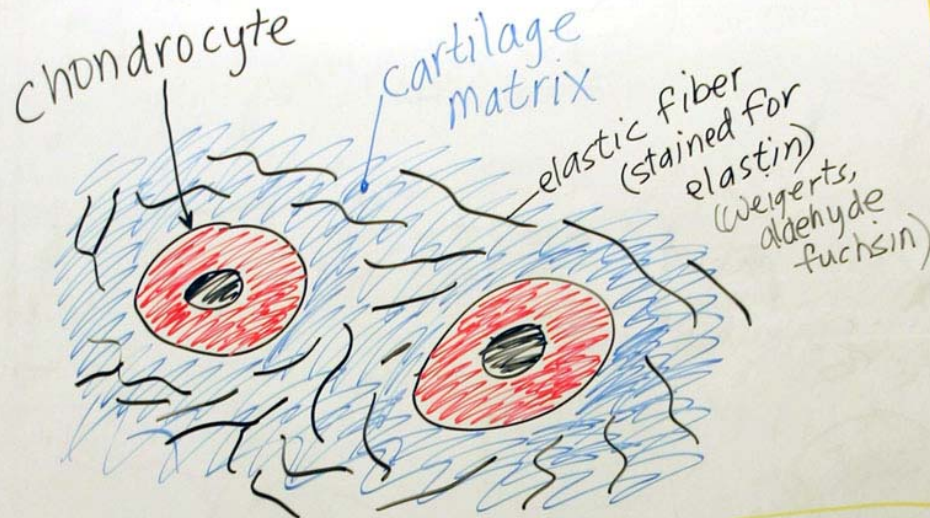 chondrocyte
cartilage
matrix
elastic fiber
(stained for
elastin)
(weigerts,
aldehyde
fuchsin)